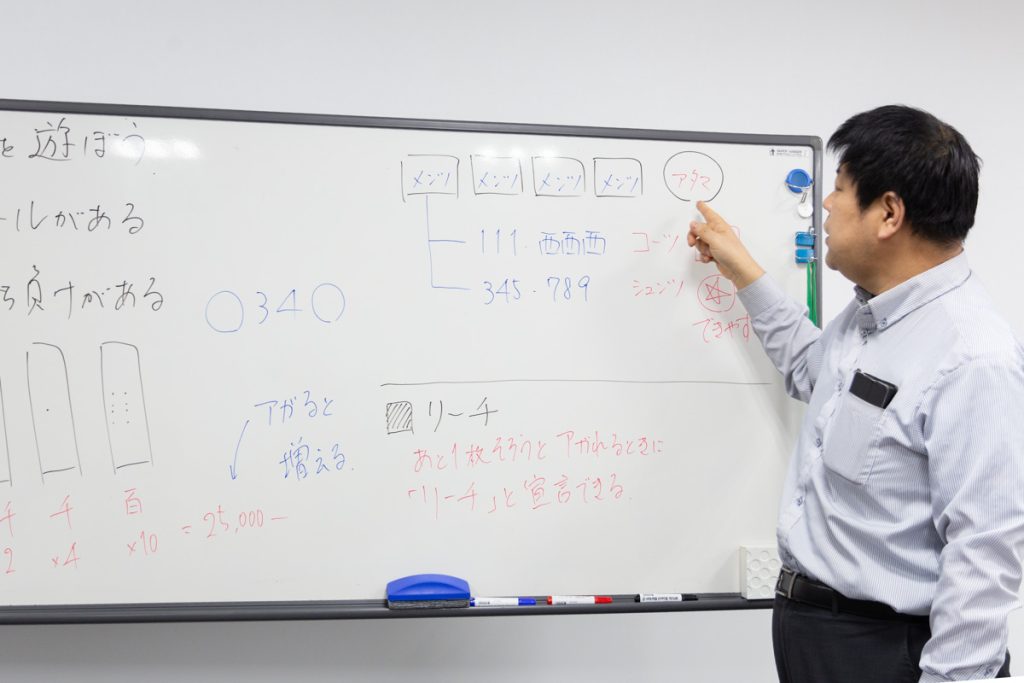 を遊ぼう
ールがある
負けがある
○34○
アガると
増える.
千 千 百
2 ×4 ×10 = 25,000-
メンツ メンツ メンツ メンツ アタマ
111・西西西 コーツ
345・789 シュンツ
できやす
リーチ
あと1枚そろうとアガれるときに
「リーチ」と宣言できる.